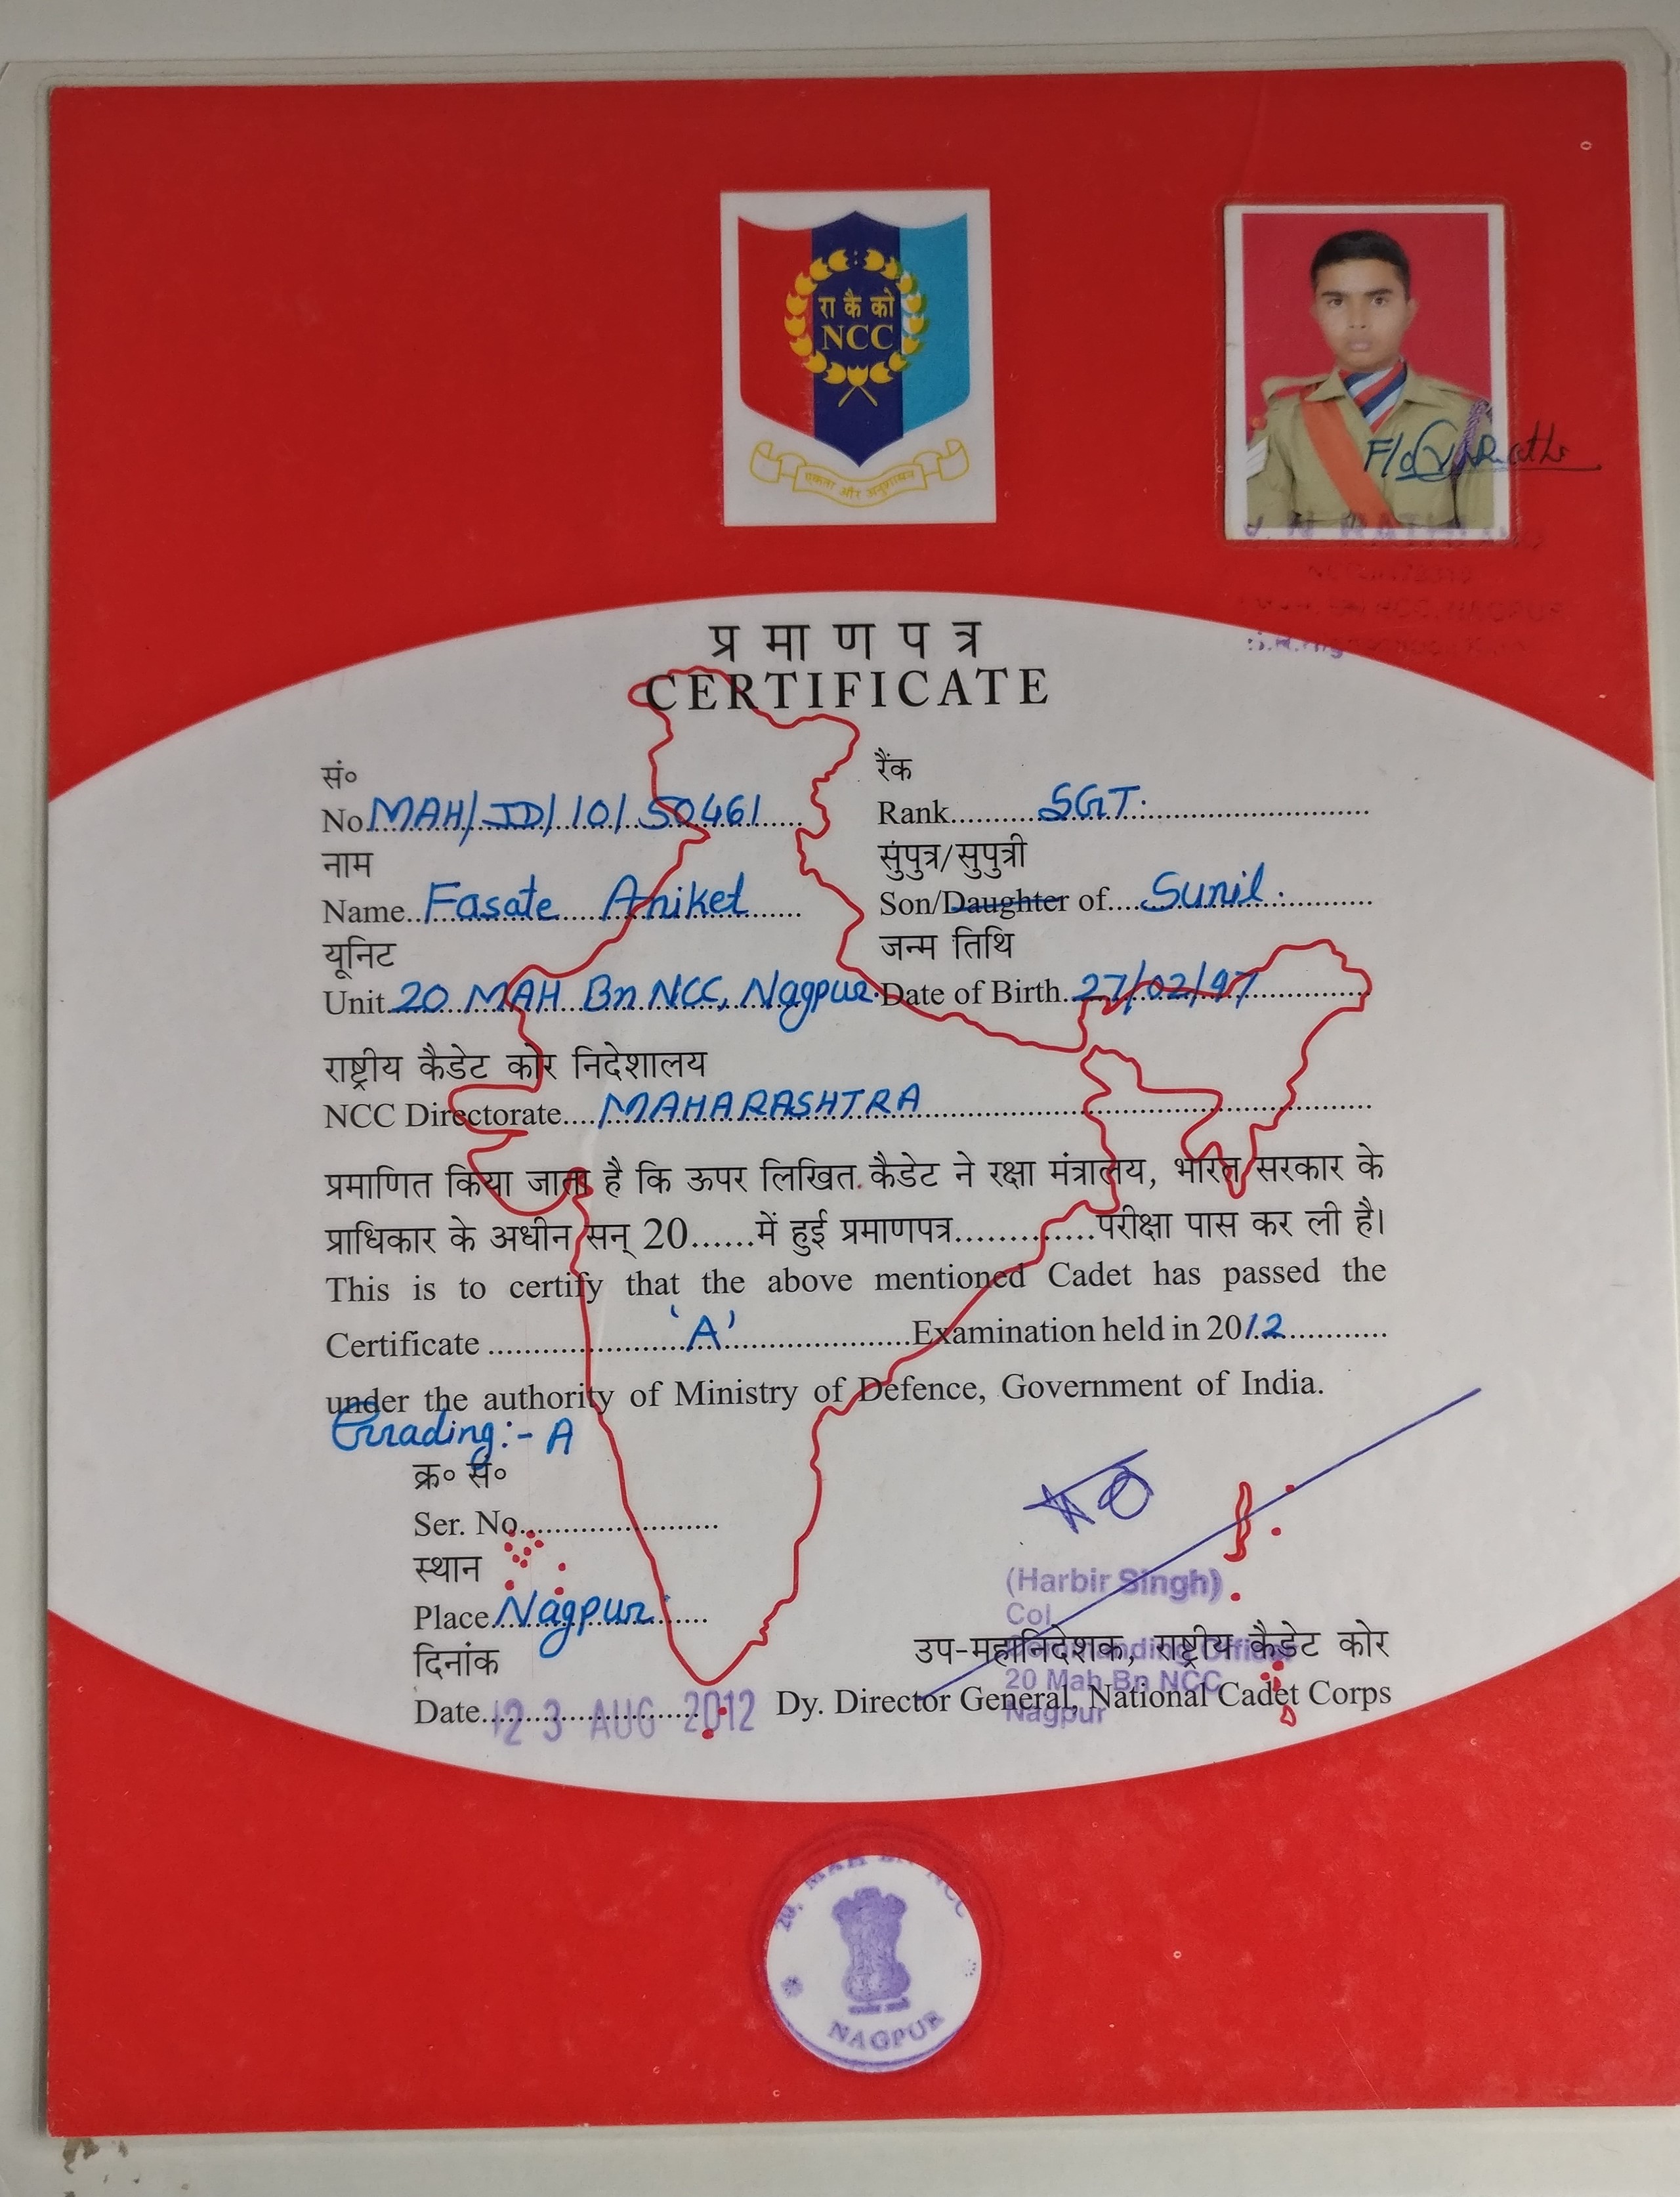 रा कै को
NCC
एकता और अनुशासन
प्रमाणपत्र
CERTIFICATE
सं०
No MAH/JD/10/50461
रैंक
Rank..........SGT.
नाम
Name..Fasate Aniket
सुंपुत्र/सुपुत्री
Son/Daughter of....Sunil.
यूनिट
Unit 20 MAH Bn NCC, Nagpur.
जन्म तिथि
Date of Birth.27/02/97
राष्ट्रीय कैडेट कोर निदेशालय
NCC Directorate....MAHARASHTRA
प्रमाणित किया जाता है कि ऊपर लिखित कैडेट ने रक्षा मंत्रालय, भारत सरकार के
प्राधिकार के अधीन सन् 20......में हुई प्रमाणपत्र.............परीक्षा पास कर ली है।
This is to certify that the above mentioned Cadet has passed the
Certificate 'A' Examination held in 2012
under the authority of Ministry of Defence, Government of India.
Grading:- A
क्र० सं०
Ser. No.
स्थान
Place Nagpur
(Harbir Singh)
Col
उप-महानिदेशक, राष्ट्रीय कैडेट कोर
20 Mah Bn NCC
Nagpur
Dy. Director General, National Cadet Corps
दिनांक
Date 23 AUG 2012
20, MAH BN NCC
NAGPUR